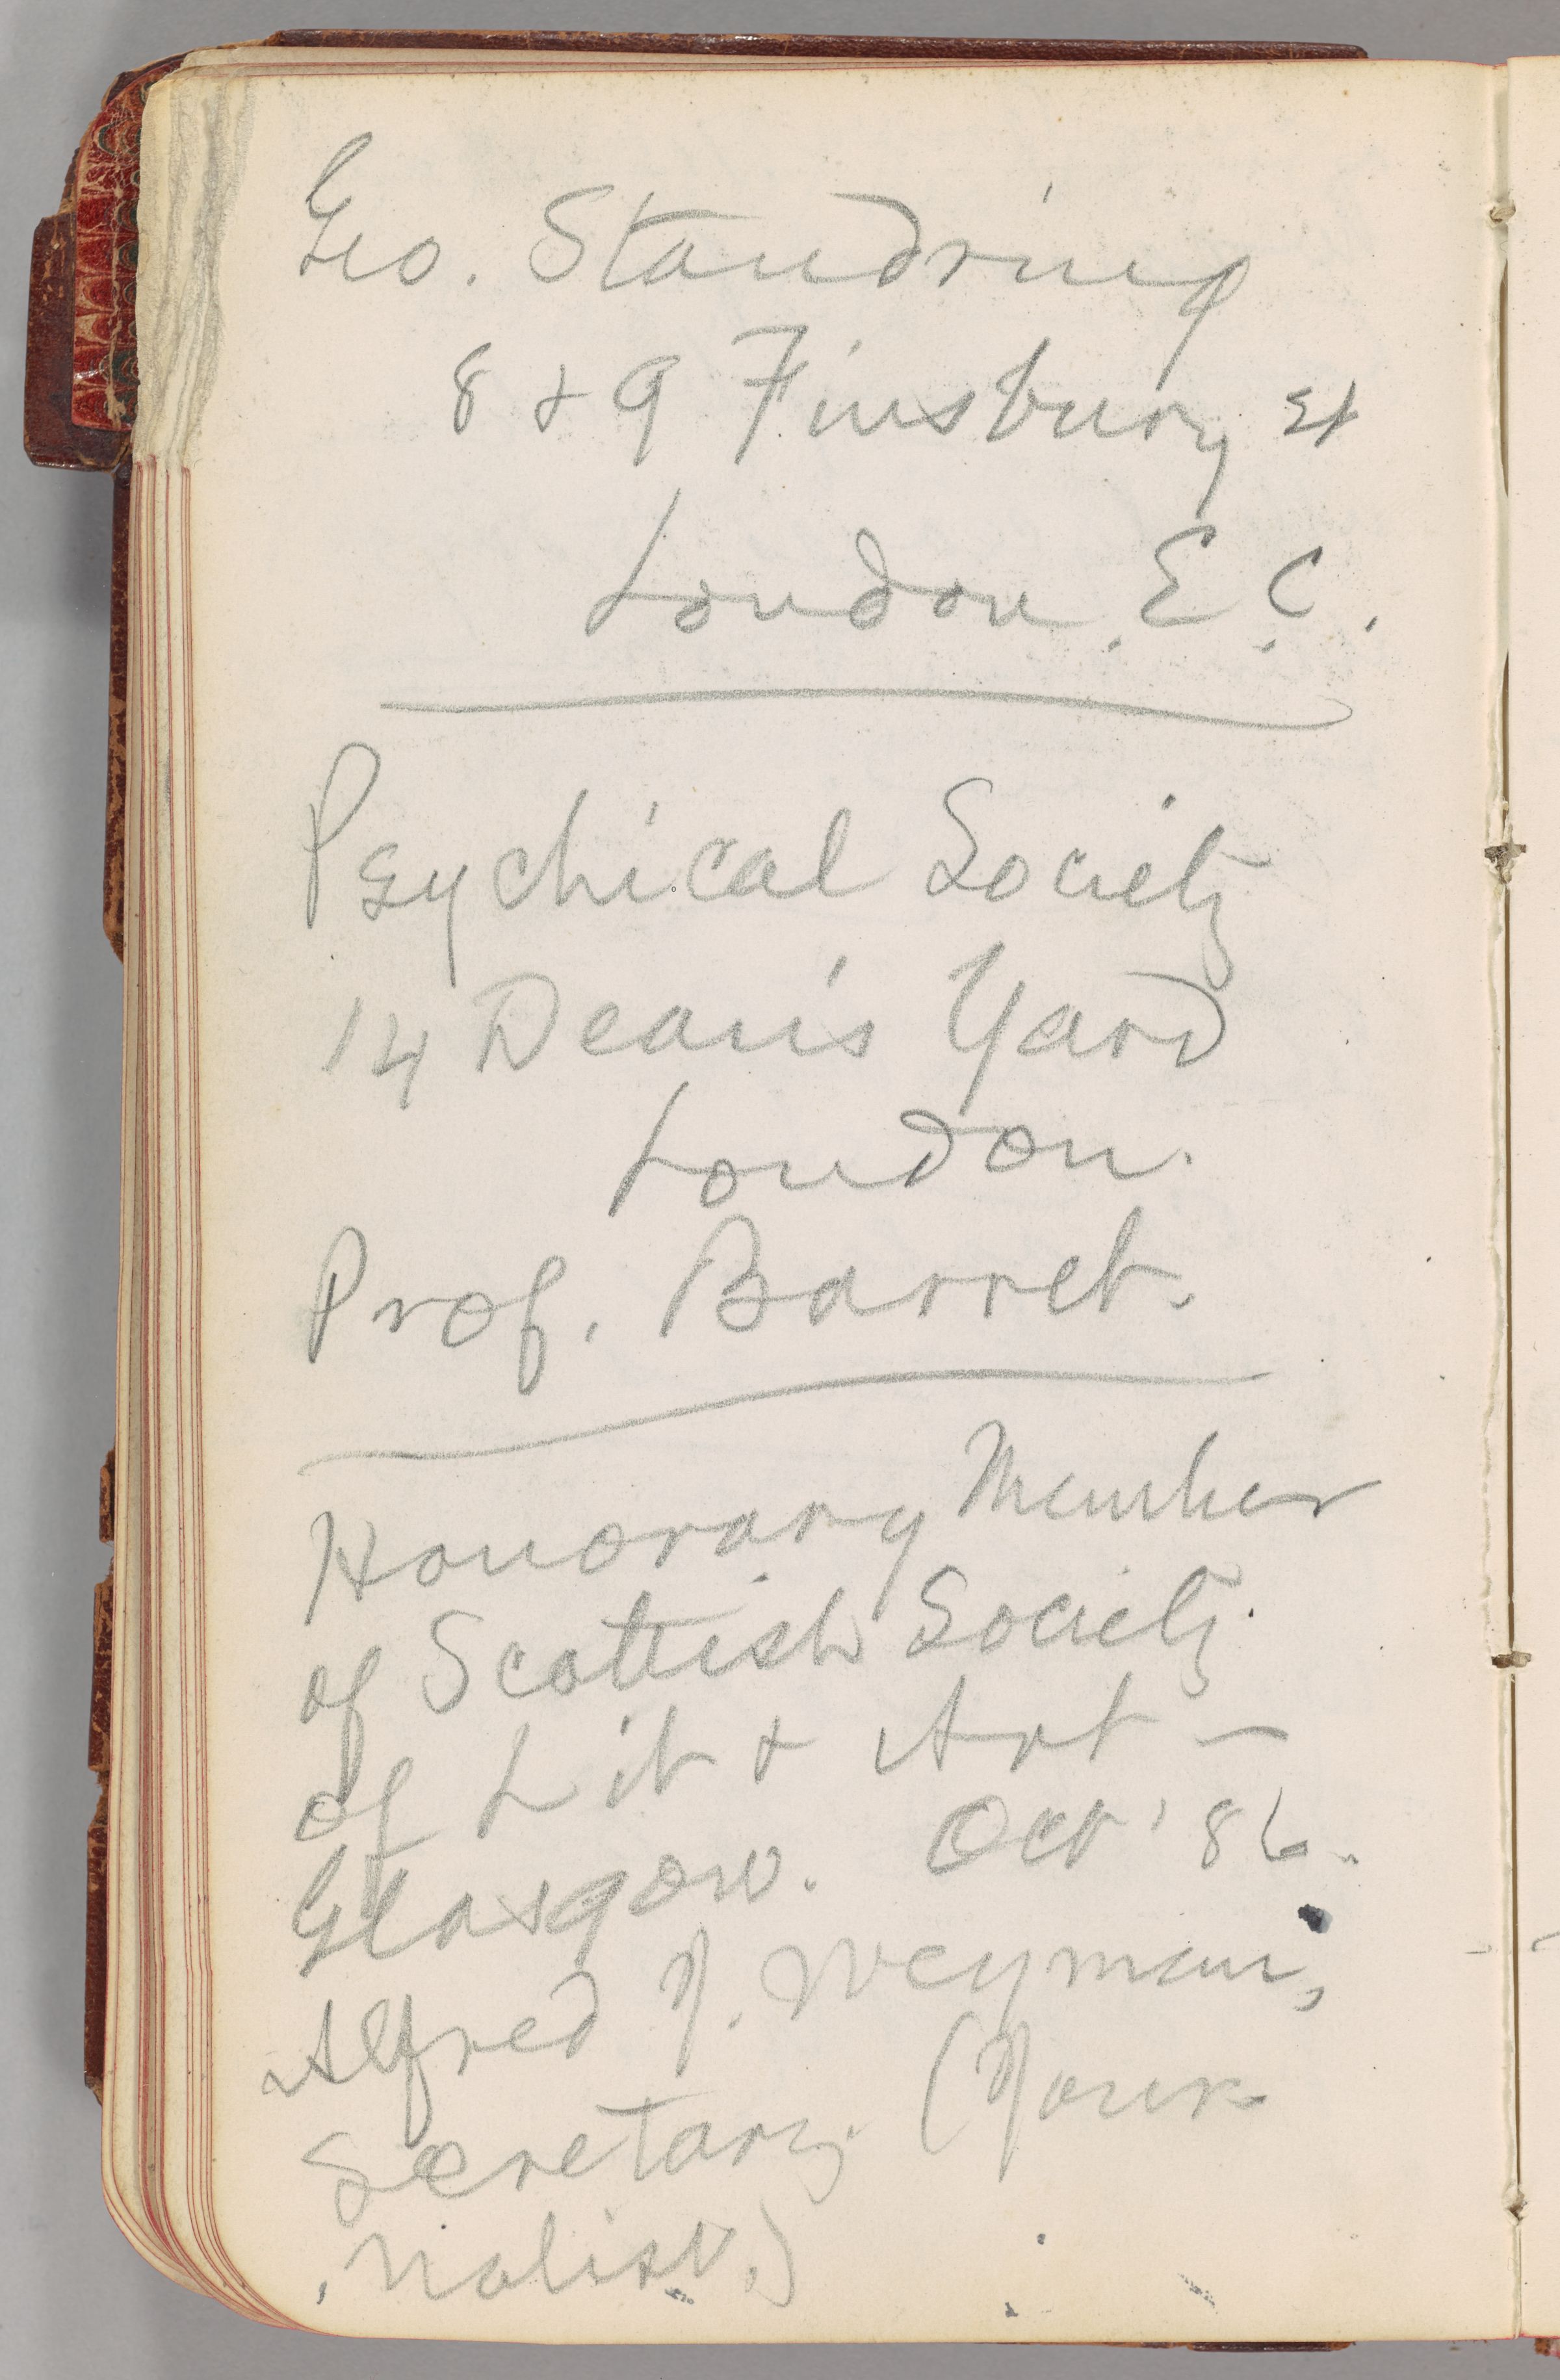 Geo. Standring
8 + 9 Finsbury St
London. E. C.
Psychical Society
14 Dean's Yard
London.
Prof. Barret.
Honorary Member
of Scottish Society
of Lit + Art —
Glasgow. Oct '86.
Alfred J. Weyman,
Secretary. (Jour-
nalist.)